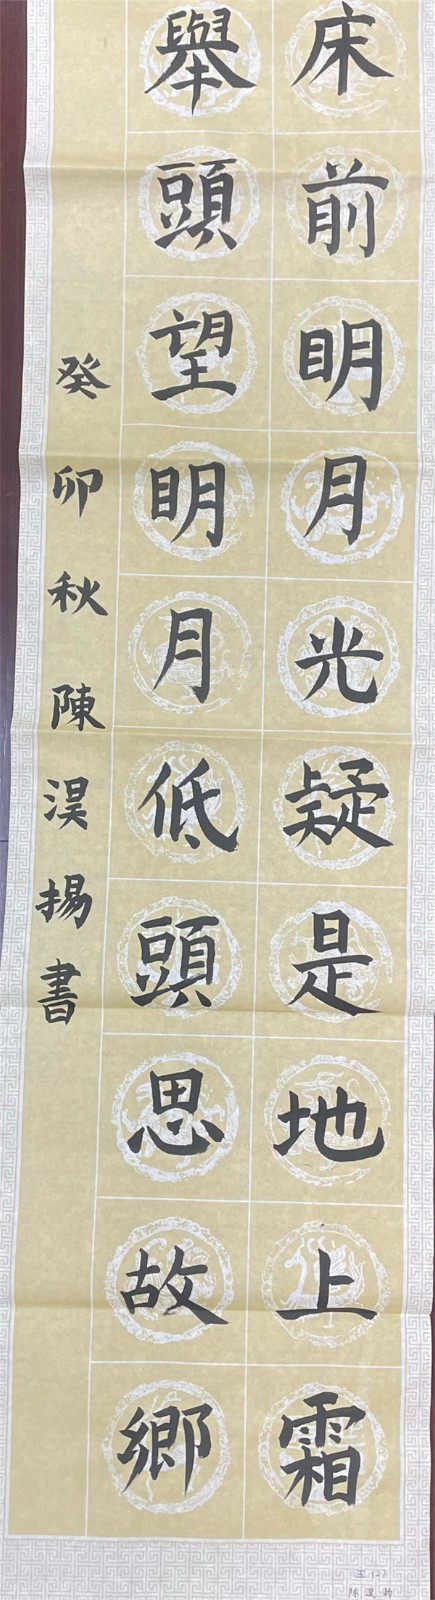 床前明月光疑是地上霜
舉頭望明月低頭思故鄉
癸卯秋陳淏揚書
五(2)